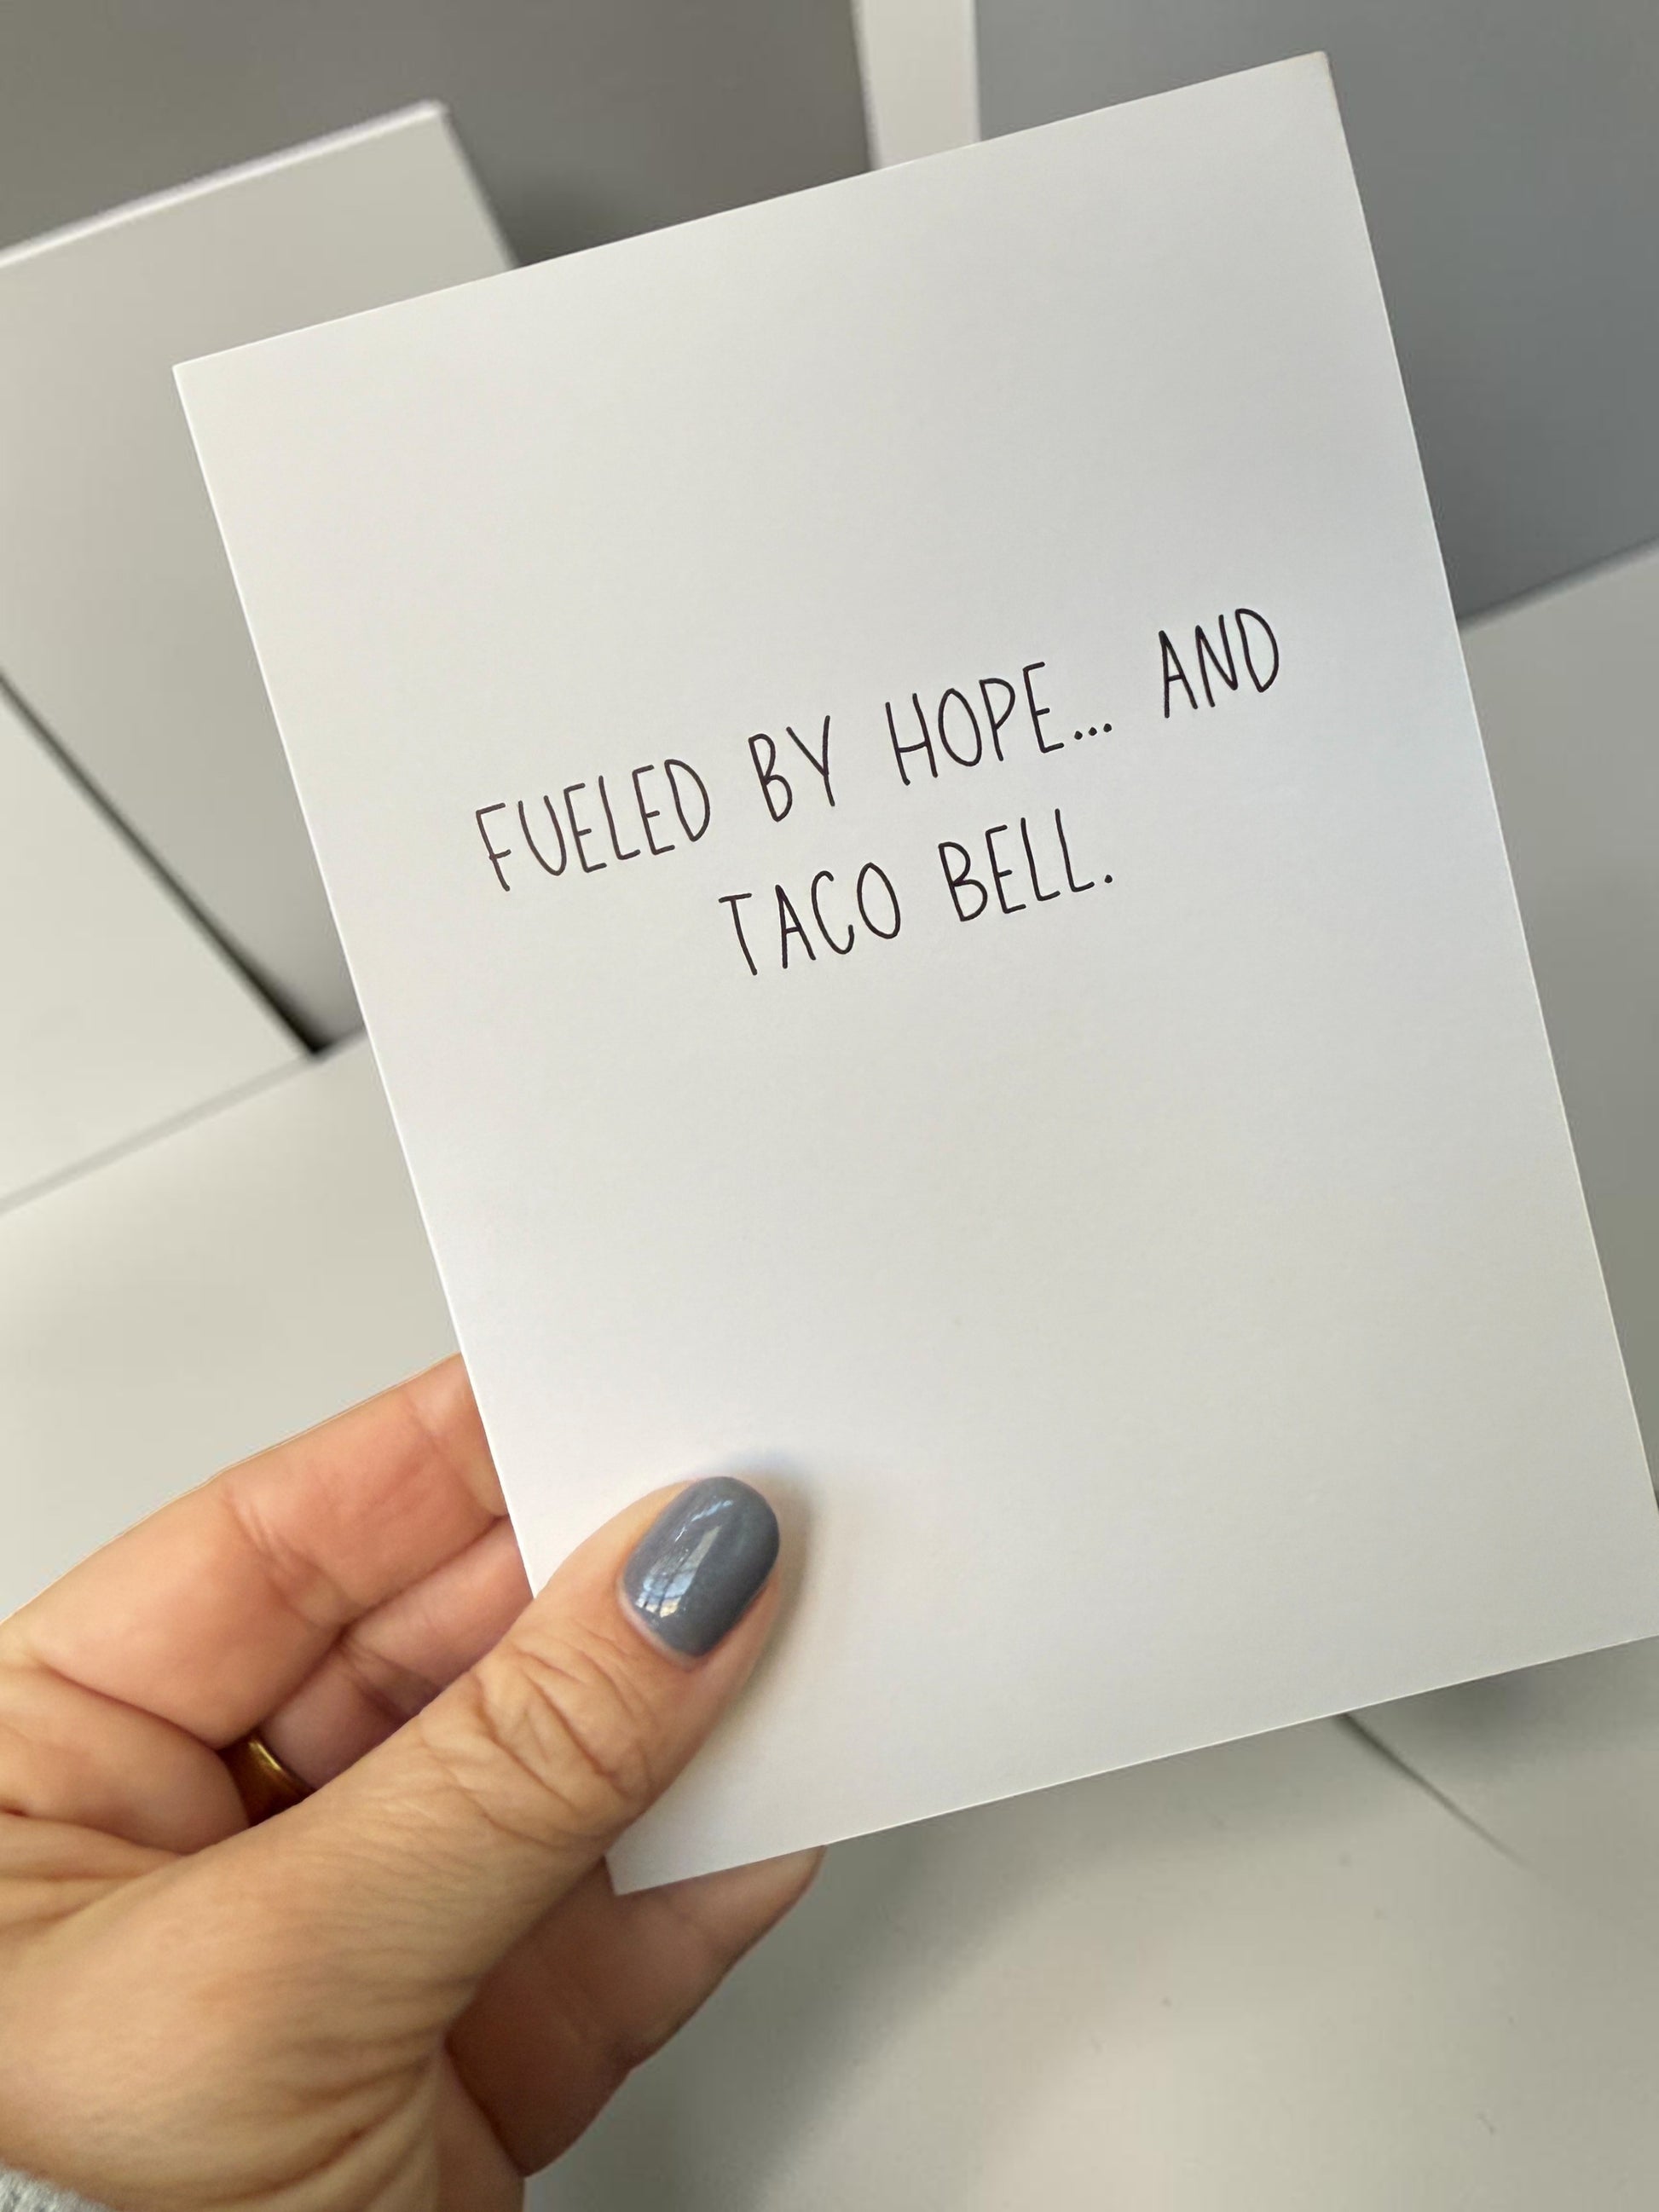 FUELED BY HOPE... AND
TACO BELL.